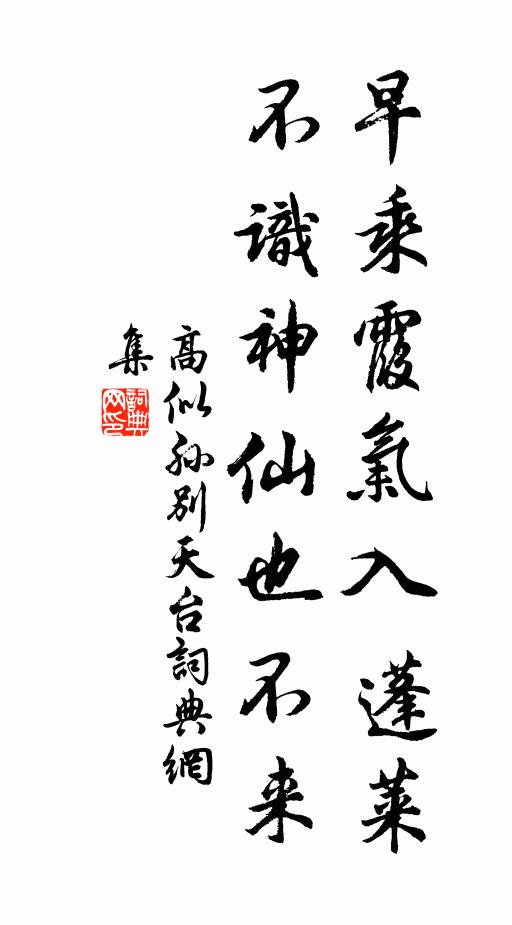 早乘霞氣入蓬萊
不識神仙也不来
高似孫別天台詞典網
集
詞典
网印